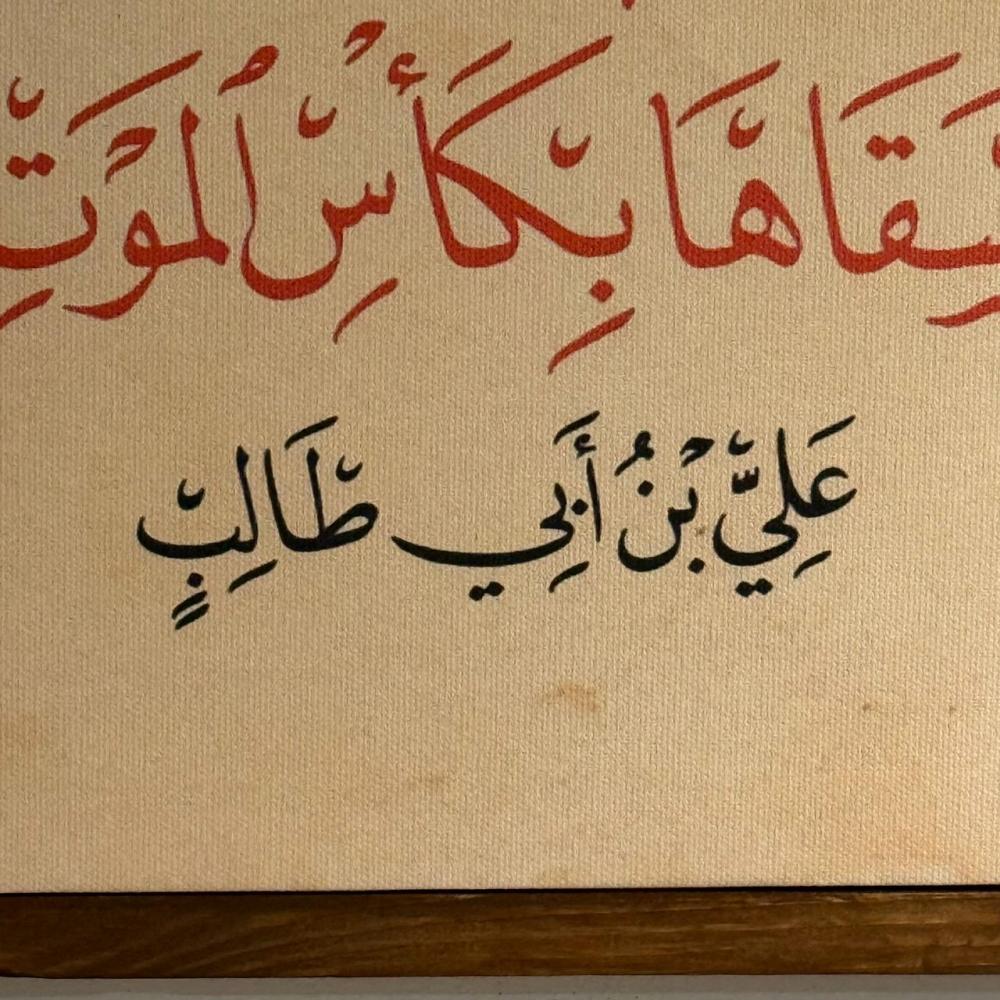 سِقَاهَا بِكَأْسِ الْمَوْتِ
عَلِيُّ بْنُ أَبِي طَالِبٍ